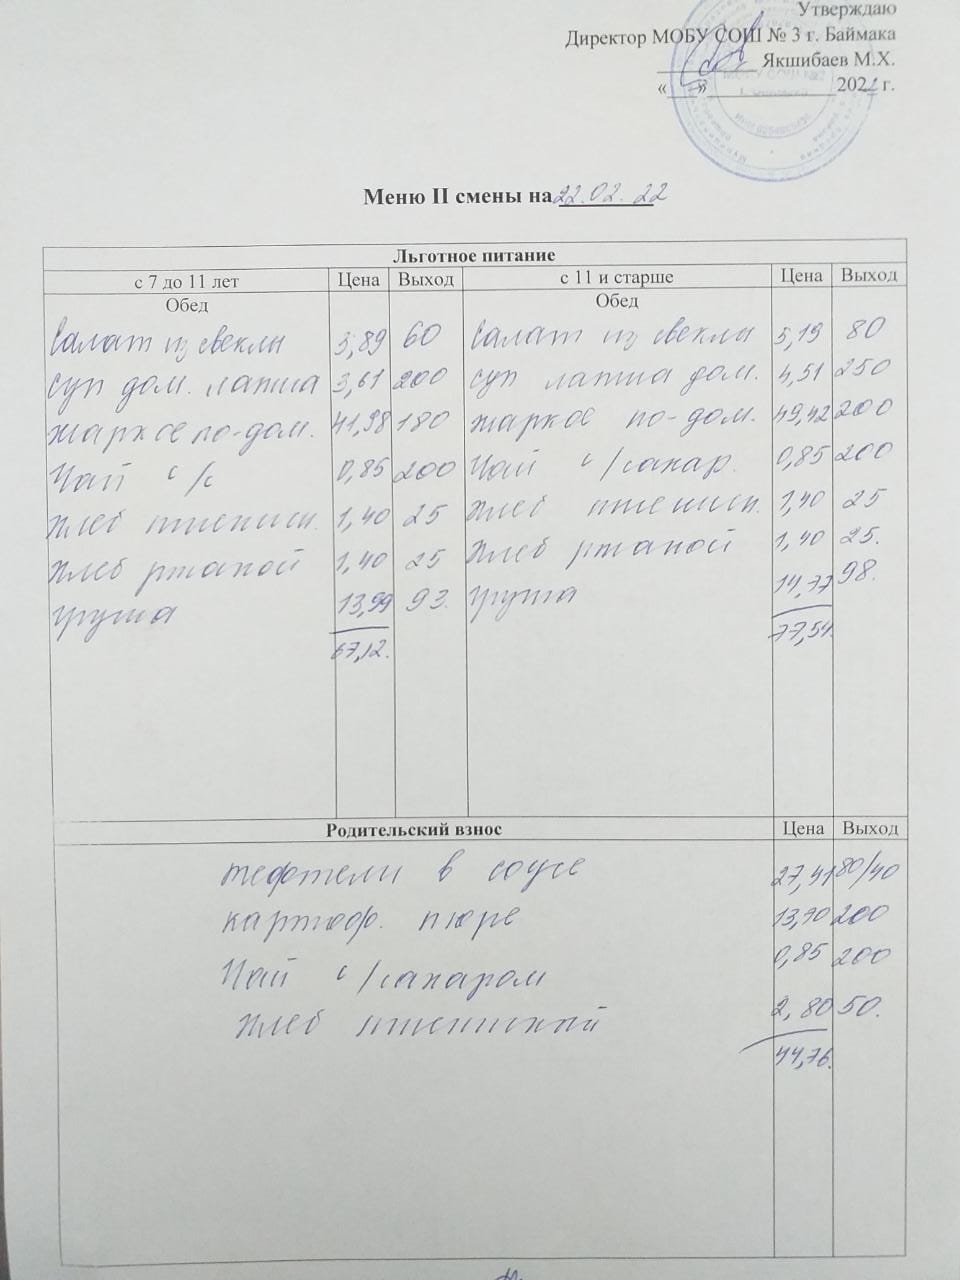 Утверждаю
Директор МОБУ СОШ № 3 г. Баймака
Якшибаев М.Х.
« » 2022 г.
Меню II смены на 22.02.22
Льготное питание
с 7 до 11 лет Цена Выход с 11 и старше Цена Выход
Обед Обед
Салат из свеклы 3,89 60 Салат из свеклы 5,19 80
Суп дом. лапша 3,61 200 Суп лапша дом. 4,51 250
Жаркое по-дом. 41,98 180 Жаркое по-дом. 49,42 200
Чай с/с 0,85 200 Чай с/сахар. 0,85 200
Хлеб пшеничн. 1,40 25 Хлеб пшеничн. 1,40 25
Хлеб ржаной 1,40 25 Хлеб ржаной 1,40 25.
Груша 13,99 93. Груша 14,77 98.
67,12. 77,54.
Родительский взнос Цена Выход
Тефтели в соусе 27,41 80/40
Картоф. пюре 13,70 200
Чай с/сахаром 0,85 200
Хлеб пшеничной 2,80 50.
44,76.